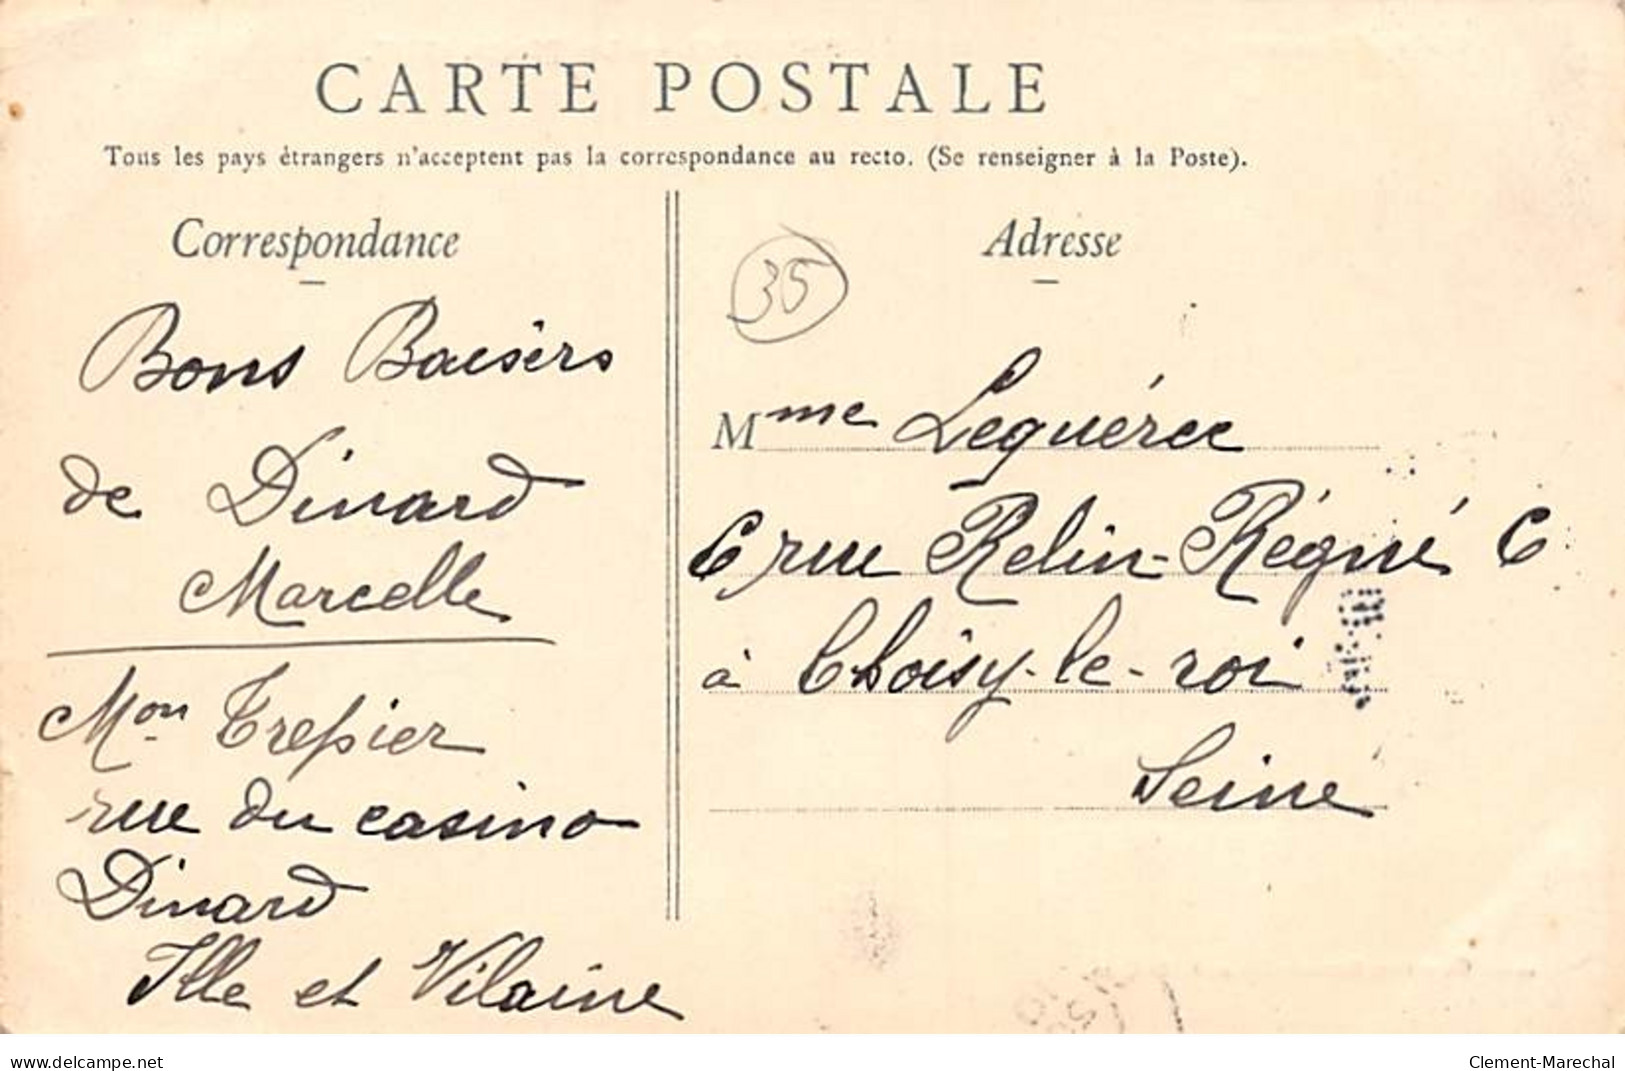 CARTE POSTALE
Tous les pays étrangers n'acceptent pas la correspondance au recto. (Se renseigner à la Poste).
Correspondance
Bons Baisers
de Dinard
Marcelle
Mon Trefsier
rue du casino
Dinard
Ille et Vilaine
35
Adresse
Mme Leguéree
6 rue Relin-Régné 6
à Choisy-le-roi
Seine
delcampe.net
Clement-Marechal